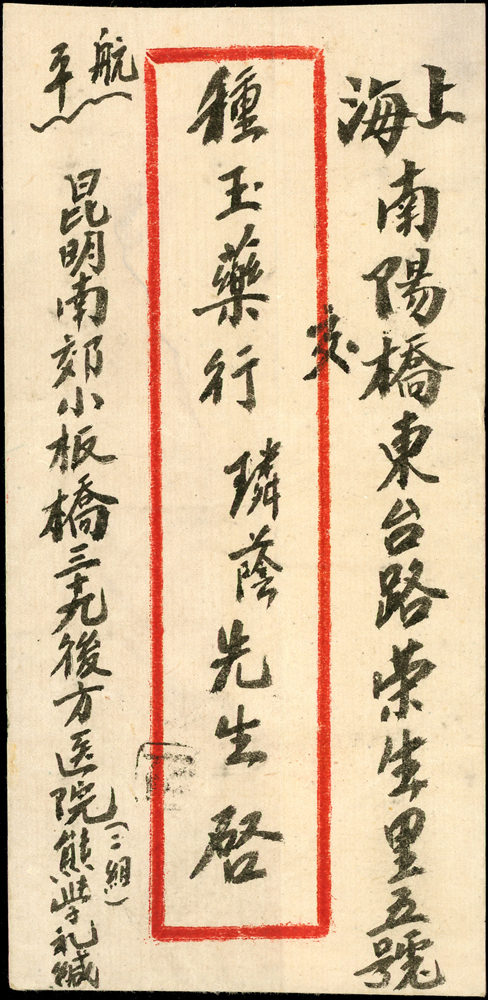 上海南陽橋東台路荣生里五號
交
種玉藥行 璘蔭先生啓
航平
昆明南郊小板橋三十九後方医院(二組)熊学礼緘